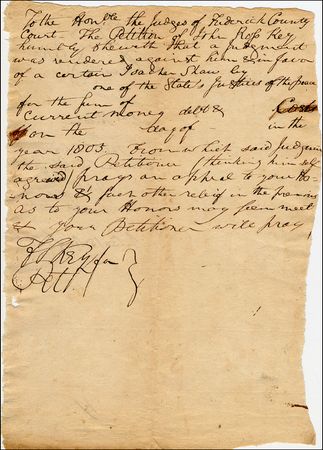 To the Honble the Judges of Frederick County
Court - The Petition of John Ross Key
humbly sheweth that a Judgment
was rendered against him & in favor
of a certain Isacher Shaw by
one of the State's Justices of the peace
for the sum of
Current money debt & Costs
on the day of in the
year 1803. From which said Judgment
the said Petitioner (thinking himself
agrieved) prays an appeal to your Ho-
nors & such other releif in the premises
as to your Honors may seem meet
& your Petitioner will pray
F S Key for
Pet